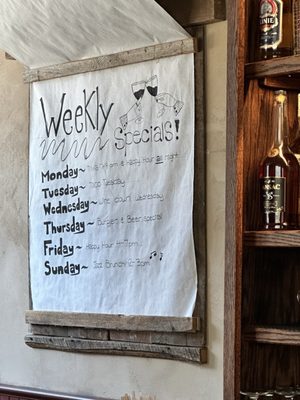 Weekly
Specials!
Monday~ & happy hour all night
Tuesday~ Taco Tuesday
Wednesday~ Wine down Wednesday
Thursday~ Burger & Beer special
Friday~ Happy hour 4-7pm
Sunday~ Jazz Brunch 12-3pm